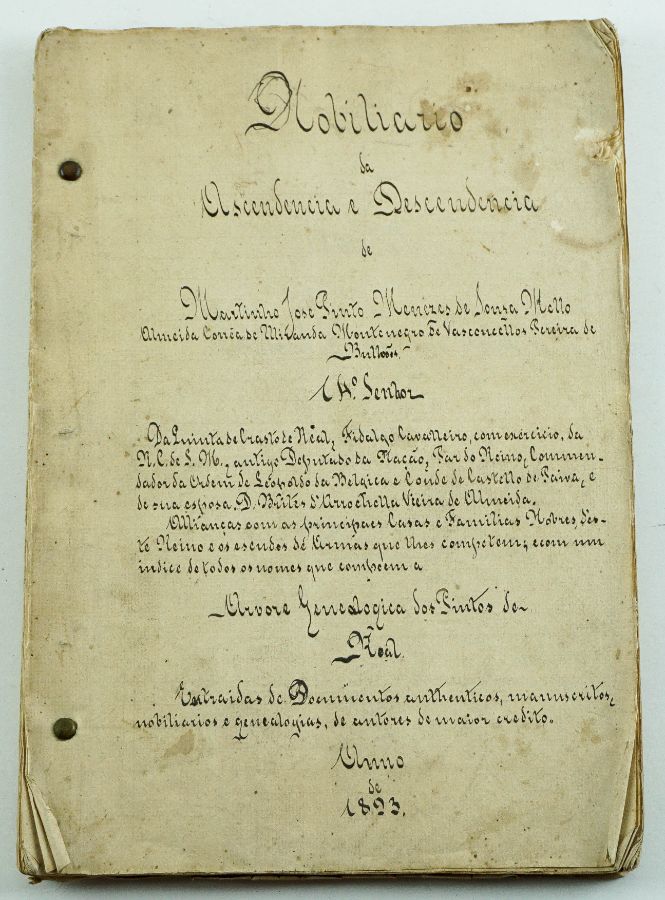 Nobiliario
da
Ascendencia e Descendencia
de
Martinho Jose Pinto Menezes de Sousa Mello
Almeida Corrêa de Miranda Montenegro de Vasconcellos Pereira de
Bulhões
14º Senhor
Da Quinta de Crasto de Nêal, Fidalgo Cavalleiro, com exercicio, da
N. C. de S. M., antigo Deputado da Nação, Par do Reino, Commen-
dador da Ordem de Leopoldo da Belgica e Conde de Castello de Paiva, e
de sua esposa, D. Brites d'Arrochella Vieira de Almeida.
Allianças com as principaes Casas e Familias Nobres, des-
te Reino e os escudos de Armas que lhes competem; e com um
indice de todos os nomes que compõem a
Arvore Genealogica dos Pintos de
Extraidas de Documentos authenticos, manuscritos,
nobiliarios e genealogias, de autores de maior credito.
Anno
de
1893.